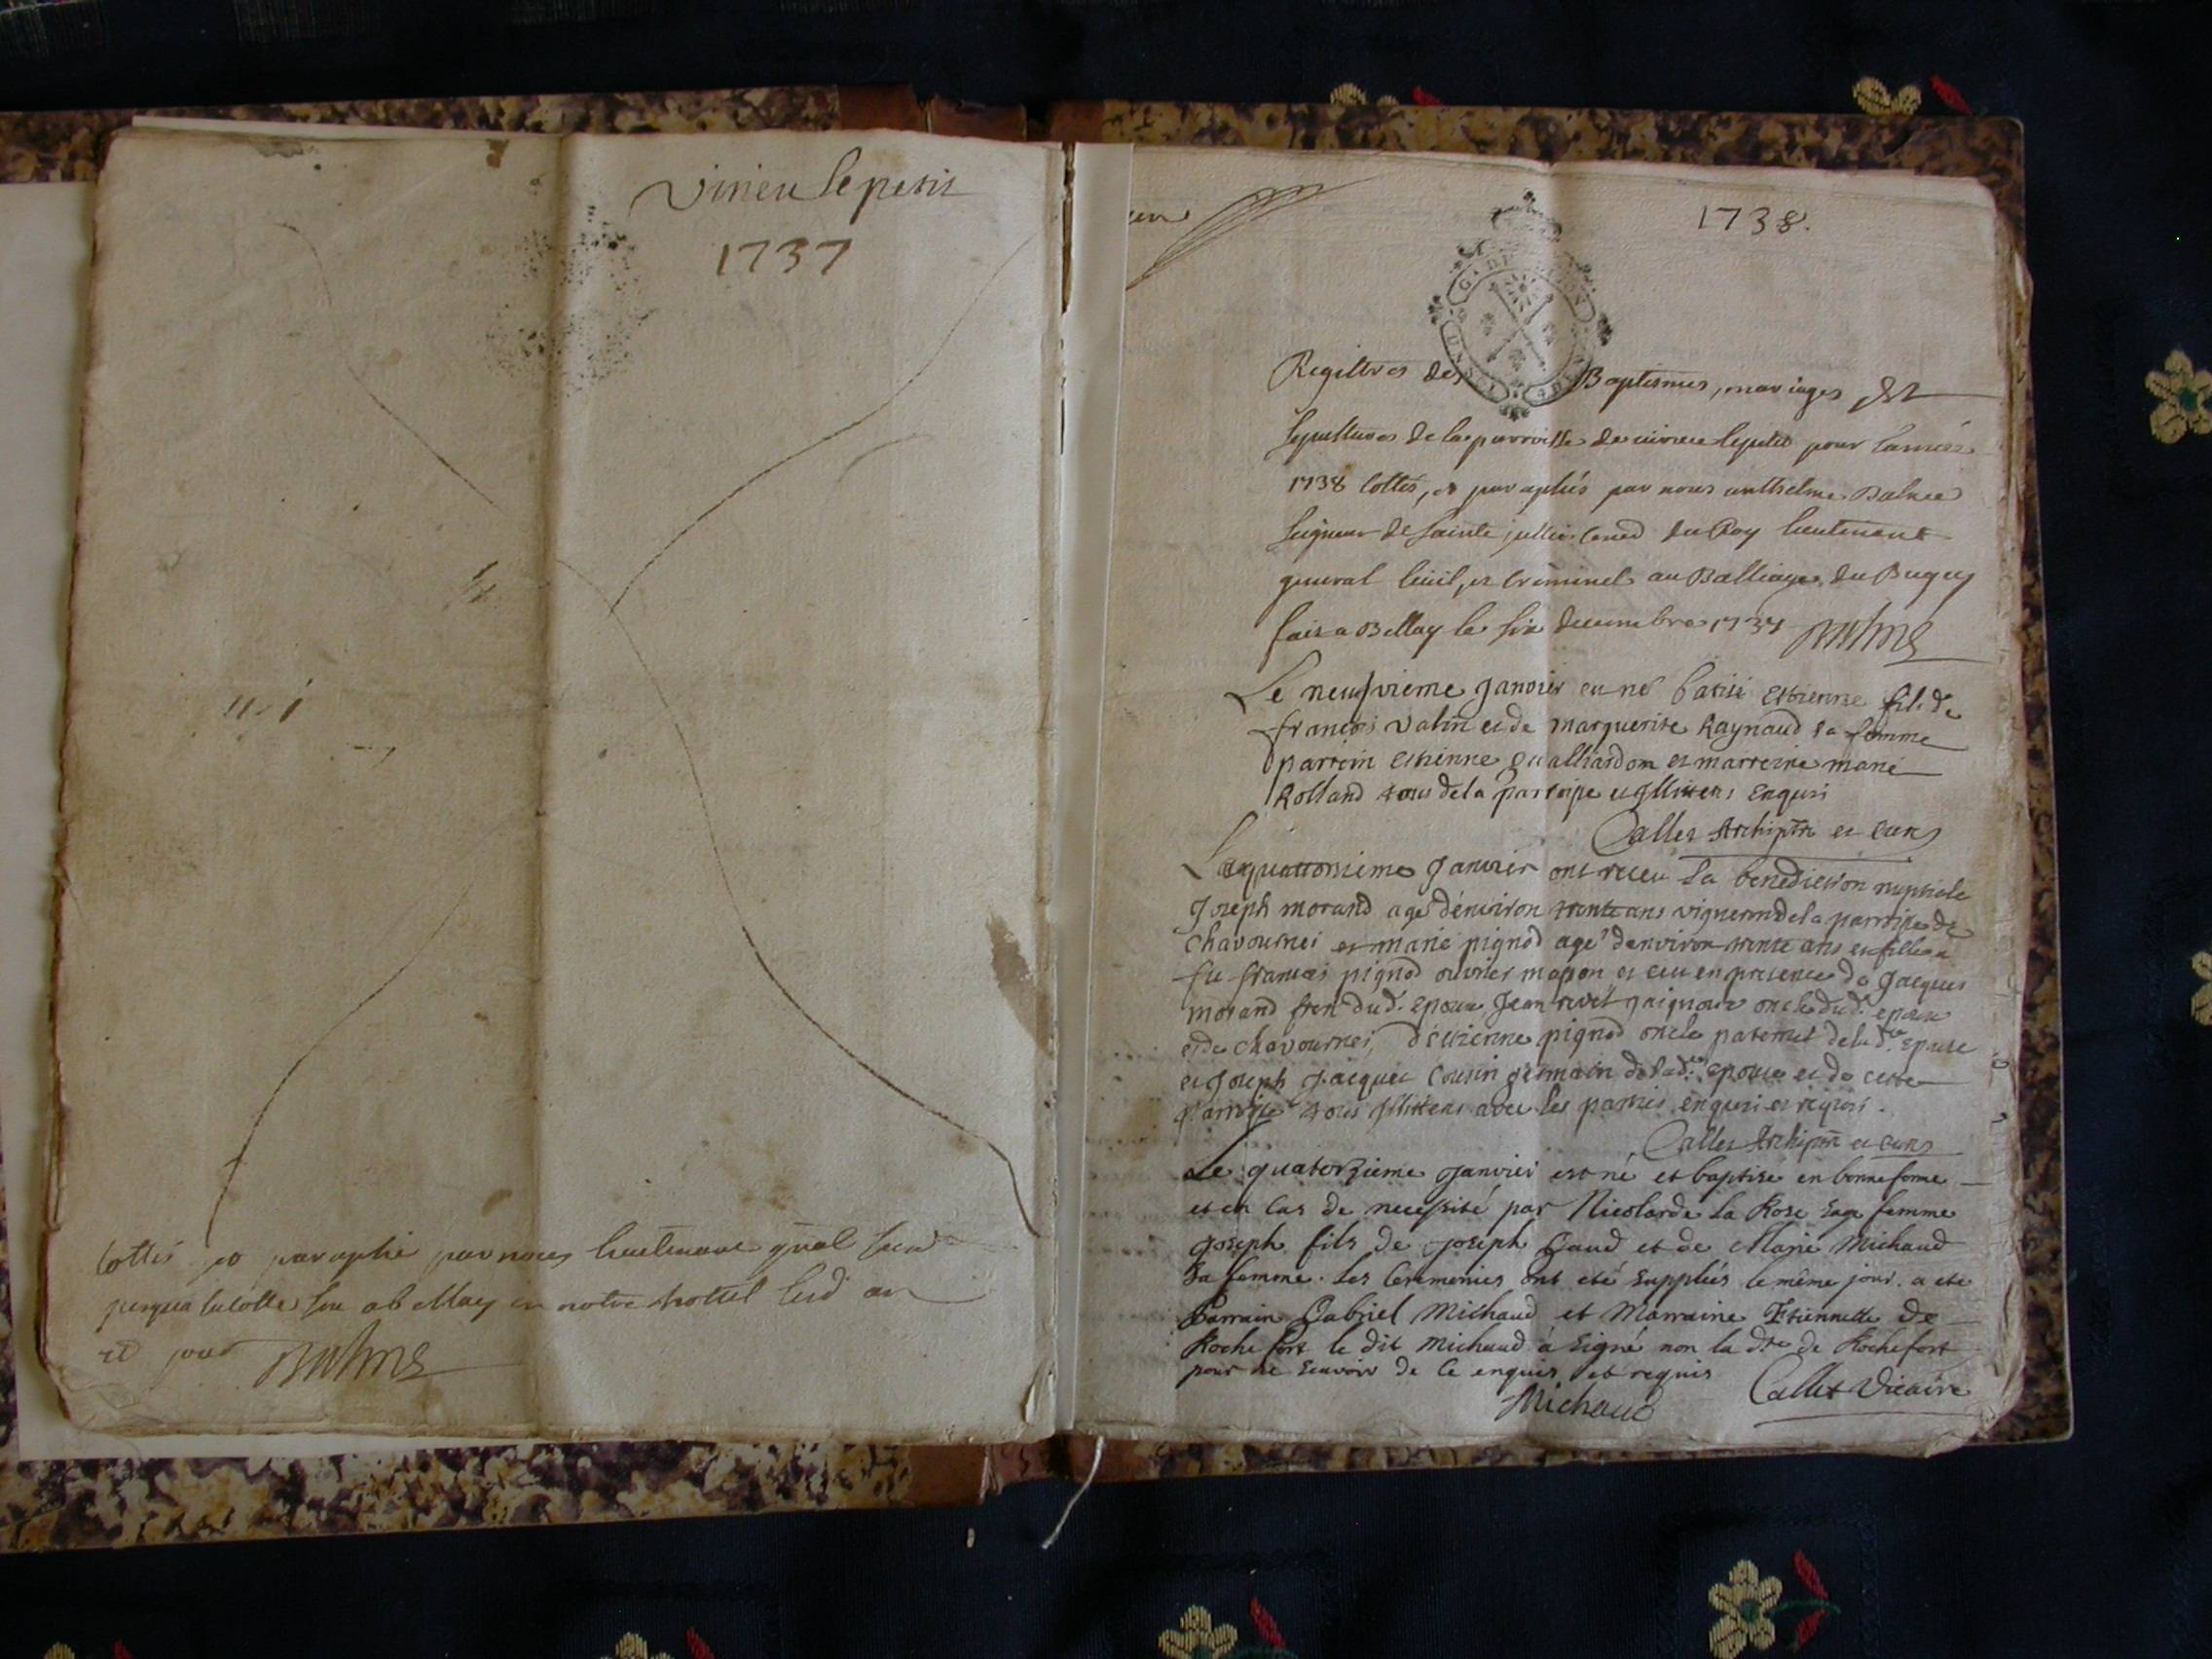 Virieu le petit
1737
Cottés et paraphé par nous lieutenant gnal
ab ellay en notre hottel led an
et jour
1738.
Registres des Baptismes, mariages et
sepultures de la parroisse de virieu lepetit pour lannée
1738 Cottés, et paraphés par nous anthelme Balme
seigneur de sainte jullie Conser du Roy lieutenant
general civil, et criminel au Balliage du Bugey
fait a Bellay le six decembre 1737
Le neufvieme Janvier est né batisé Estienne fils de
françois Valin et de marguerite Raynaud sa femme
parrein estienne et marreine marie
Rolland tous de la parroisse et illiteres enquis
Callet Archiptre et curé
Le quattorsieme Janvier ont receu la benediction nuptiale
Joseph morand agé d'enuiron trente ans vigneron de la parroisse de
Chavournei et marie pignod agé d'environ trente ans et fille a
fu françois pignod ouvrier masson et ceu en presence de Jacques
morand frere dud. epoux, Jean oncle dud. epoux
et de chavournei, d'estienne pignod oncle paternel de lad.te epouse
et Joseph Jacquet Cousin germain de lad.te epouse et de cette
parroisse tous illiteres avec les parties enquis et requis.
Callet Archiptre et curé
Le quatorzieme Janvier est né et baptisé en bonne forme
et en Cas de necessité par Nicolarde la Rose sage femme
Joseph fils de Joseph et de Marie Michaud
sa femme. Les Ceremonies ont eté suppliés le même jour. a eté
Parrain Gabriel Michaud et Marraine Etiennette De
Rochefort le dit Michaud à signé non la dte de Rochefort
pour ne scavoir de Ce enquis et requis
Michaud
Callet Vicaire